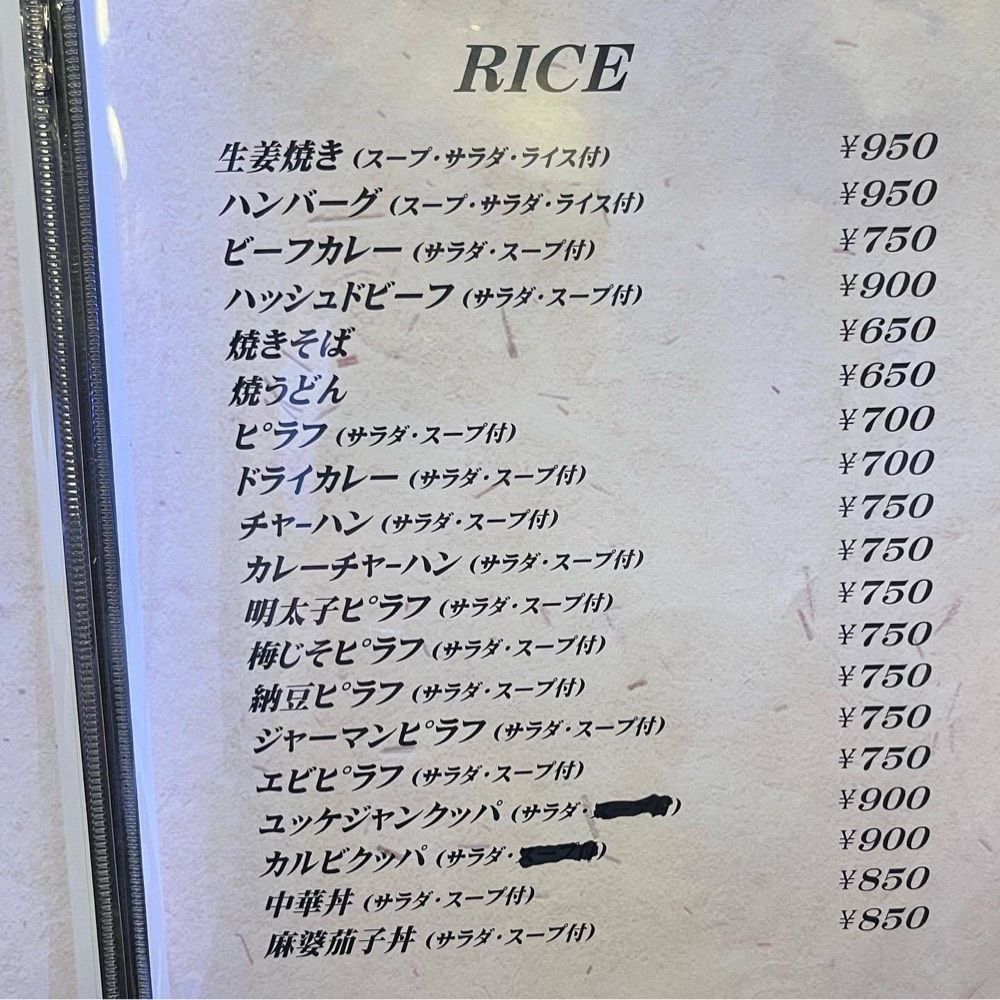 RICE
生姜焼き (スープ・サラダ・ライス付) ¥950
ハンバーグ (スープ・サラダ・ライス付) ¥950
ビーフカレー (サラダ・スープ付) ¥750
ハッシュドビーフ (サラダ・スープ付) ¥900
焼きそば ¥650
焼うどん ¥650
ピラフ (サラダ・スープ付) ¥700
ドライカレー (サラダ・スープ付) ¥700
チャーハン (サラダ・スープ付) ¥750
カレーチャーハン (サラダ・スープ付) ¥750
明太子ピラフ (サラダ・スープ付) ¥750
梅じそピラフ (サラダ・スープ付) ¥750
納豆ピラフ (サラダ・スープ付) ¥750
ジャーマンピラフ (サラダ・スープ付) ¥750
エビピラフ (サラダ・スープ付) ¥750
ユッケジャンクッパ (サラダ・) ¥900
カルビクッパ (サラダ・) ¥900
中華丼 (サラダ・スープ付) ¥850
麻婆茄子丼 (サラダ・スープ付) ¥850